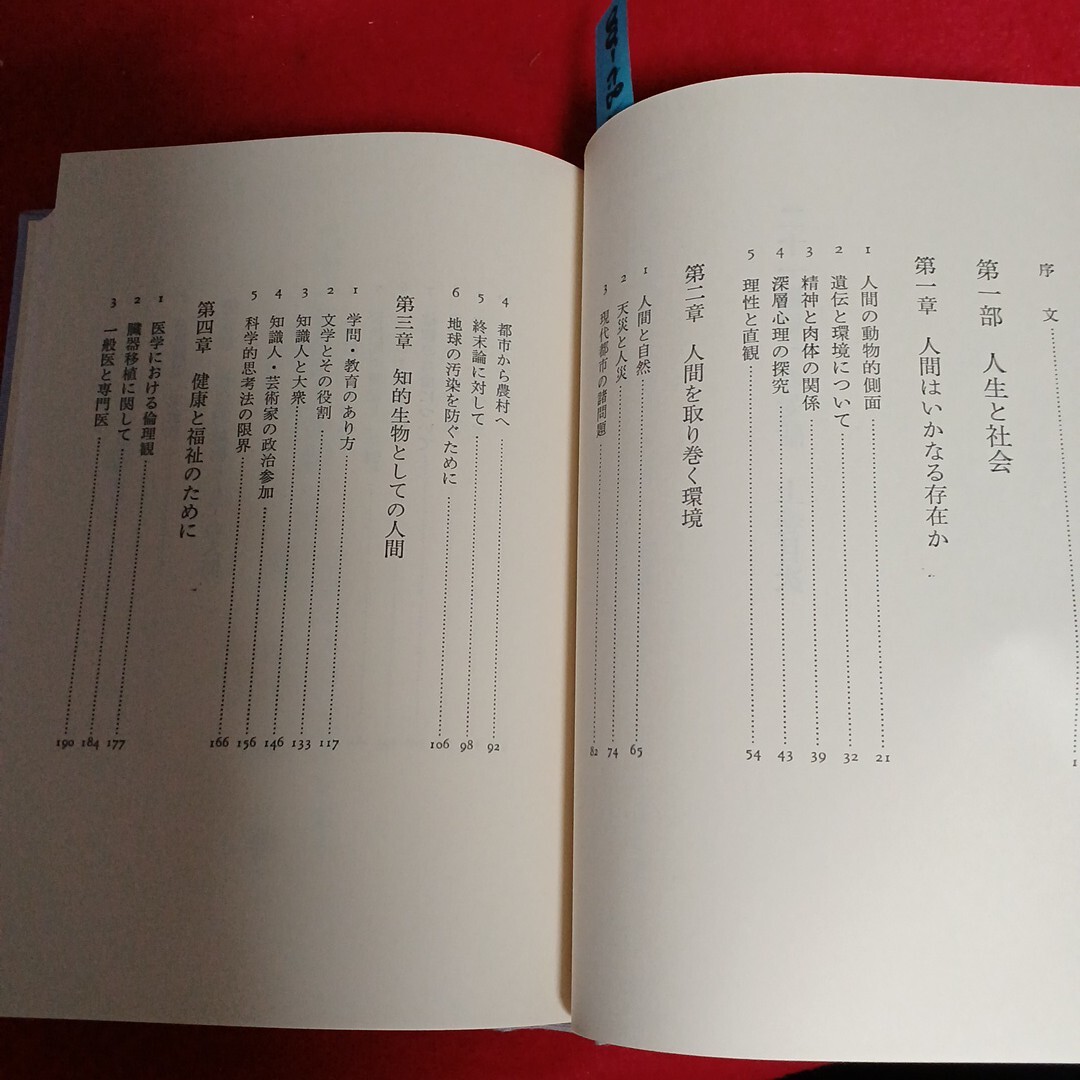 序文……1
第一部　人生と社会
第一章　人間はいかなる存在か
1　人間の動物的側面……21
2　遺伝と環境について……32
3　精神と肉体の関係……39
4　深層心理の探究……43
5　理性と直観……54
第二章　人間を取り巻く環境
1　人間と自然……65
2　天災と人災……74
3　現代都市の諸問題……82
4　都市から農村へ……92
5　終末論に対して……98
6　地球の汚染を防ぐために……106
第三章　知的生物としての人間
1　学問・教育のあり方……117
2　文学とその役割……133
3　知識人と大衆……146
4　知識人・芸術家の政治参加……156
5　科学的思考法の限界……166
第四章　健康と福祉のために
1　医学における倫理観……177
2　臓器移植に関して……184
3　一般医と専門医……190